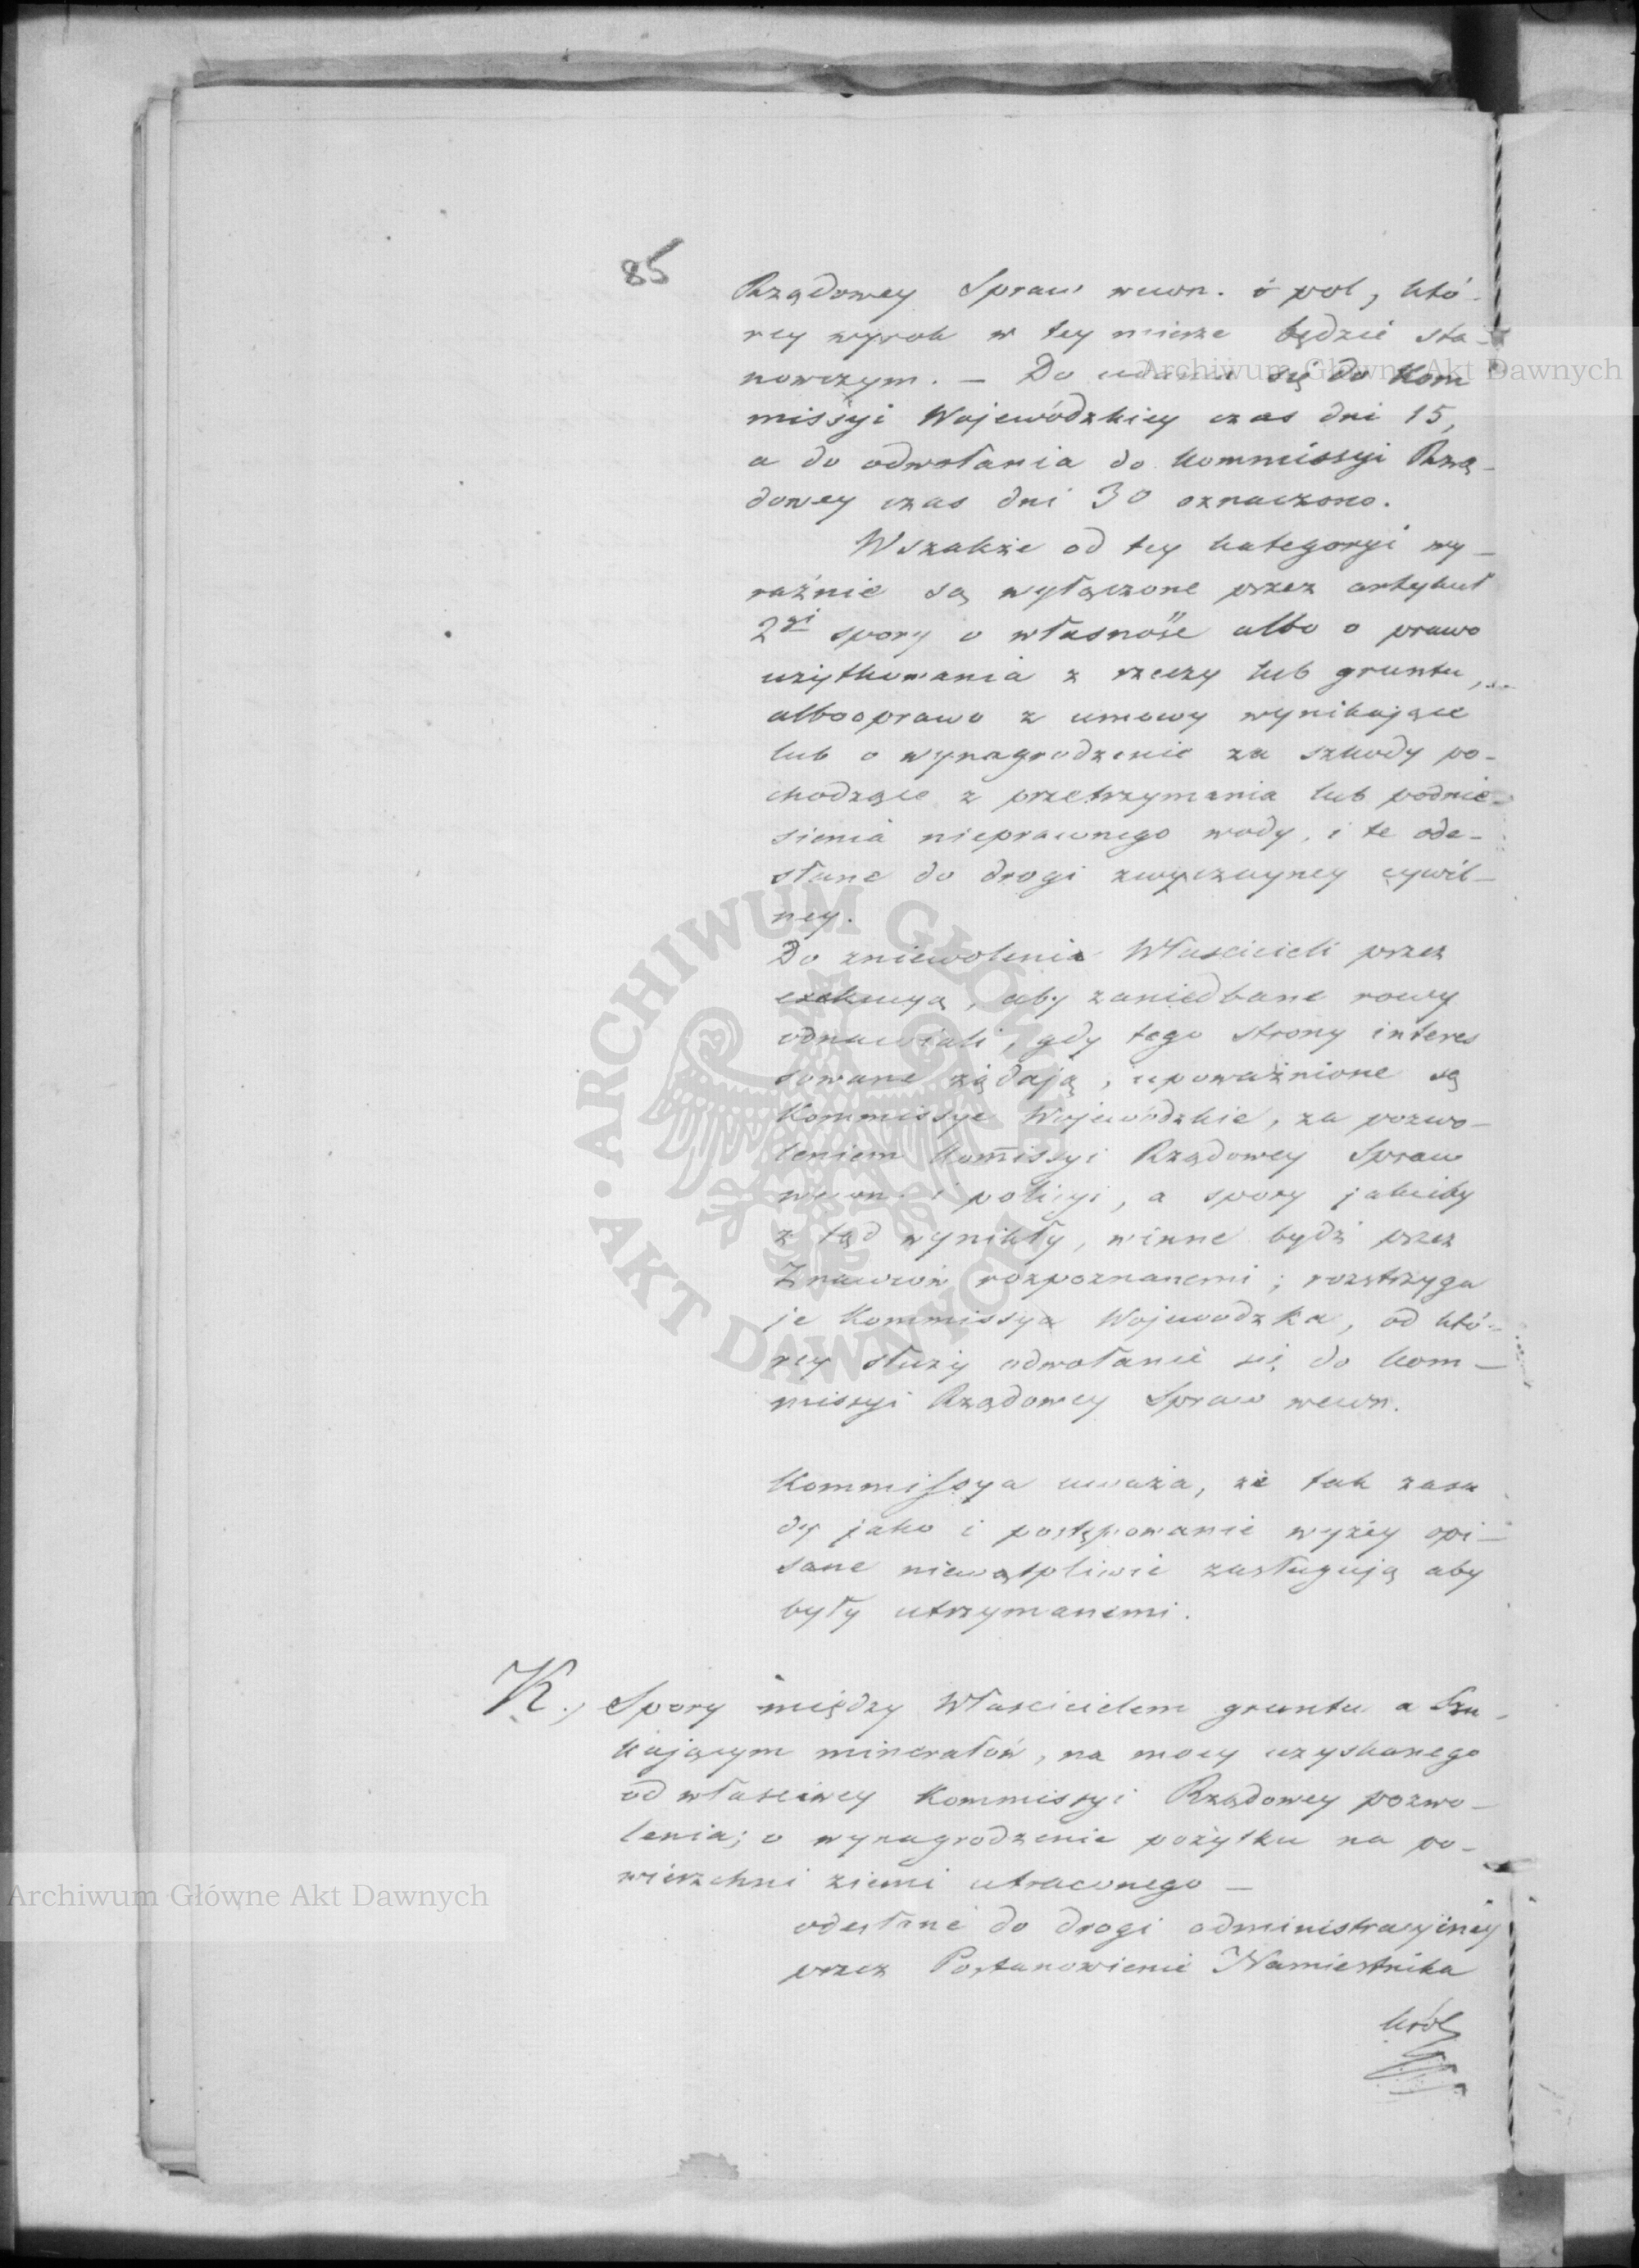 85
Rządowey Spraw wewn. i pol, któ-
rey wyrok w tey mierze będzie sta-
nowczym. – Do udania się do Kom
missyi Wojewódzkiey czas dni 15,
a do odwołania do Kommissyi Rzą-
dowey czas dni 30 oznaczono.
Wszakże od tey kategoryi wy-
raźnie są wyłączone przez artykuł
2gi spory o własność albo o prawo
użytkowania z rzeczy lub gruntu,
albo o prawo z umowy wynikające
lub o wynagrodzenie za szkody po-
chodzące z przetrzymania lub podnie-
sienia nieprawnego wody, i te ode-
słane do drogi zwyczayney cywil-
ney.
Do zniewolenia Właścicieli przez
exekucyą, aby zaniedbane rowy
odnawiali, gdy tego strony interes
sowane żądają, upoważnione są
Kommissye Wojewódzkie, za pozwo-
leniem Kom̅issyi Rządowey Spraw
wewn. i policyi, a spory jakieby
z tąd wynikły, winne bydź przez
Znawców rozpoznanemi; rozstrzyga
je Kommissya Wojewodzka, od któ-
rey służy odwołanie się do Kom-
missyi Rządowey Spraw wewn.
Kommissya uważa, że tak zasa
dy jako i postępowanie wyżey opi-
sane niewątpliwie zasługują aby
były utrzymanemi.
K., Spory między Właścicielem gruntu a Szu-
kającym minerałów, na mocy uzyskanego
od właściwey Kommissyi Rządowey pozwo-
lenia; o wynagrodzenie pożytku na po-
wierzchni ziemi utraconego –
odesłane do drogi administracyiney
przez Postanowienie Namiestnika
Król
Archiwum Główne Akt Dawnych
Archiwum Główne Akt Dawnych
ARCHIWUM GŁÓWNE AKT DAWNYCH